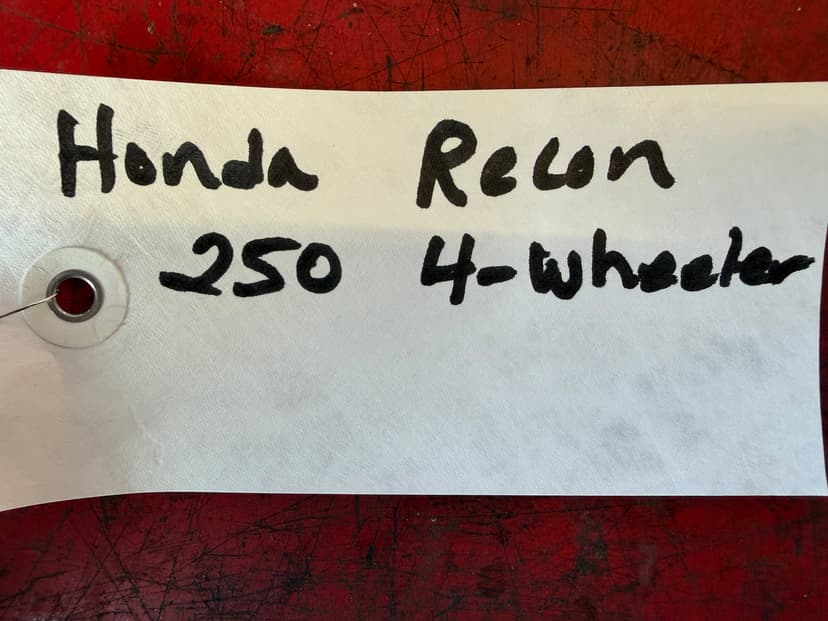 Honda Recon
250 4-wheeler